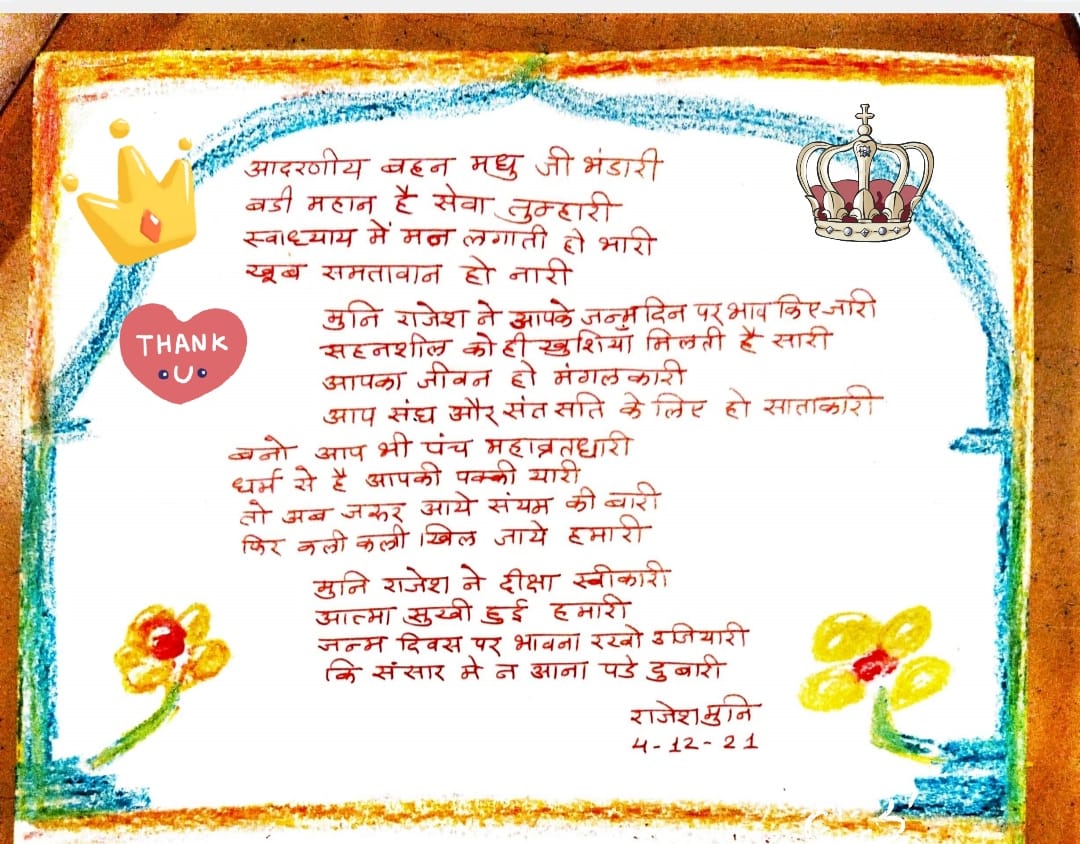 आदरणीय बहन मधु जी भंडारी
बडी महान है सेवा तुम्हारी
स्वाध्याय में मन लगाती हो भारी
खूब समतावान हो नारी
मुनि राजेश ने आपके जन्मदिन पर भाव किए जारी
सहनशील को ही खुशियाँ मिलती है सारी
आपका जीवन हो मंगलकारी
आप संघ और संत सति के लिए हो साताकारी
THANK
U
बनो आप भी पंच महाव्रतधारी
धर्म से है आपकी पक्की यारी
तो अब जरुर आये संयम की बारी
फिर कली कली खिल जाये हमारी
मुनि राजेश ने दीक्षा स्वीकारी
आत्मा सुखी हुई हमारी
जन्म दिवस पर भावना रखो उजियारी
कि संसार मे न आना पडे दुबारी
राजेश मुनि
4-12-21